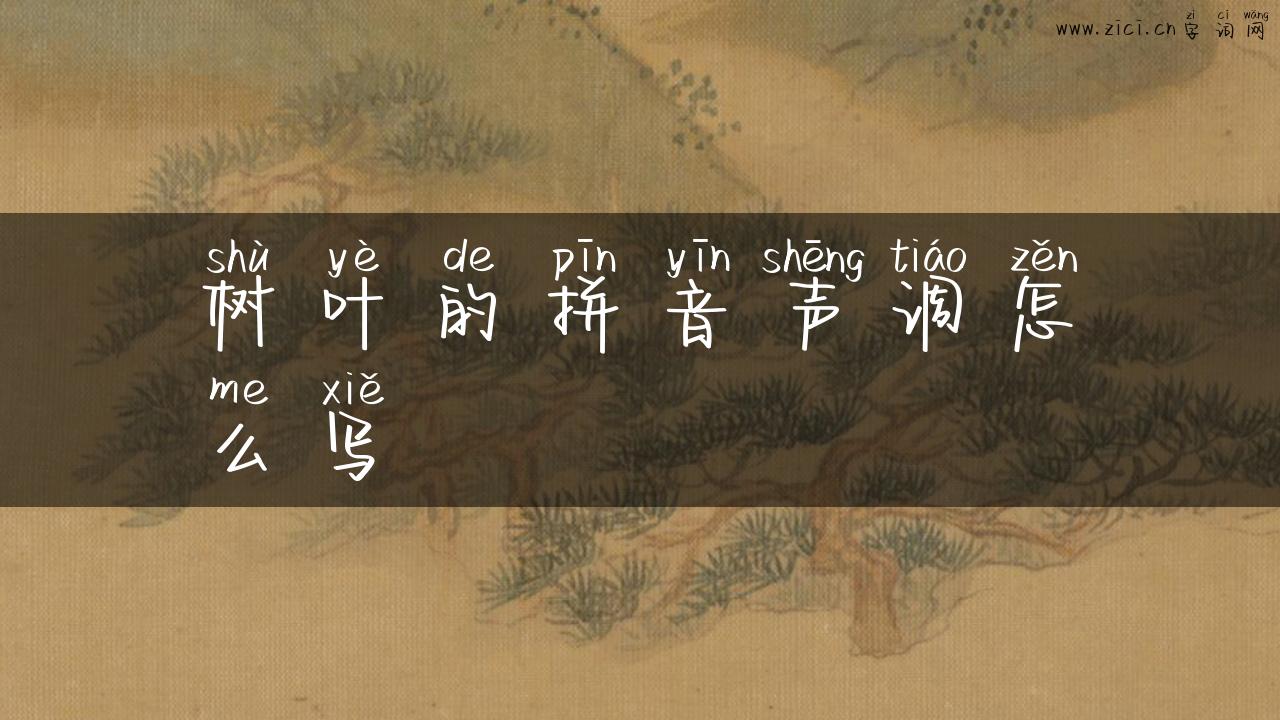 zì cí wǎng
www.zìcì.cn 字 词 网
shù yè de pīn yīn shēng tiáo zěn
树 叶 的 拼 音 声 调 怎
me xiě
么 写